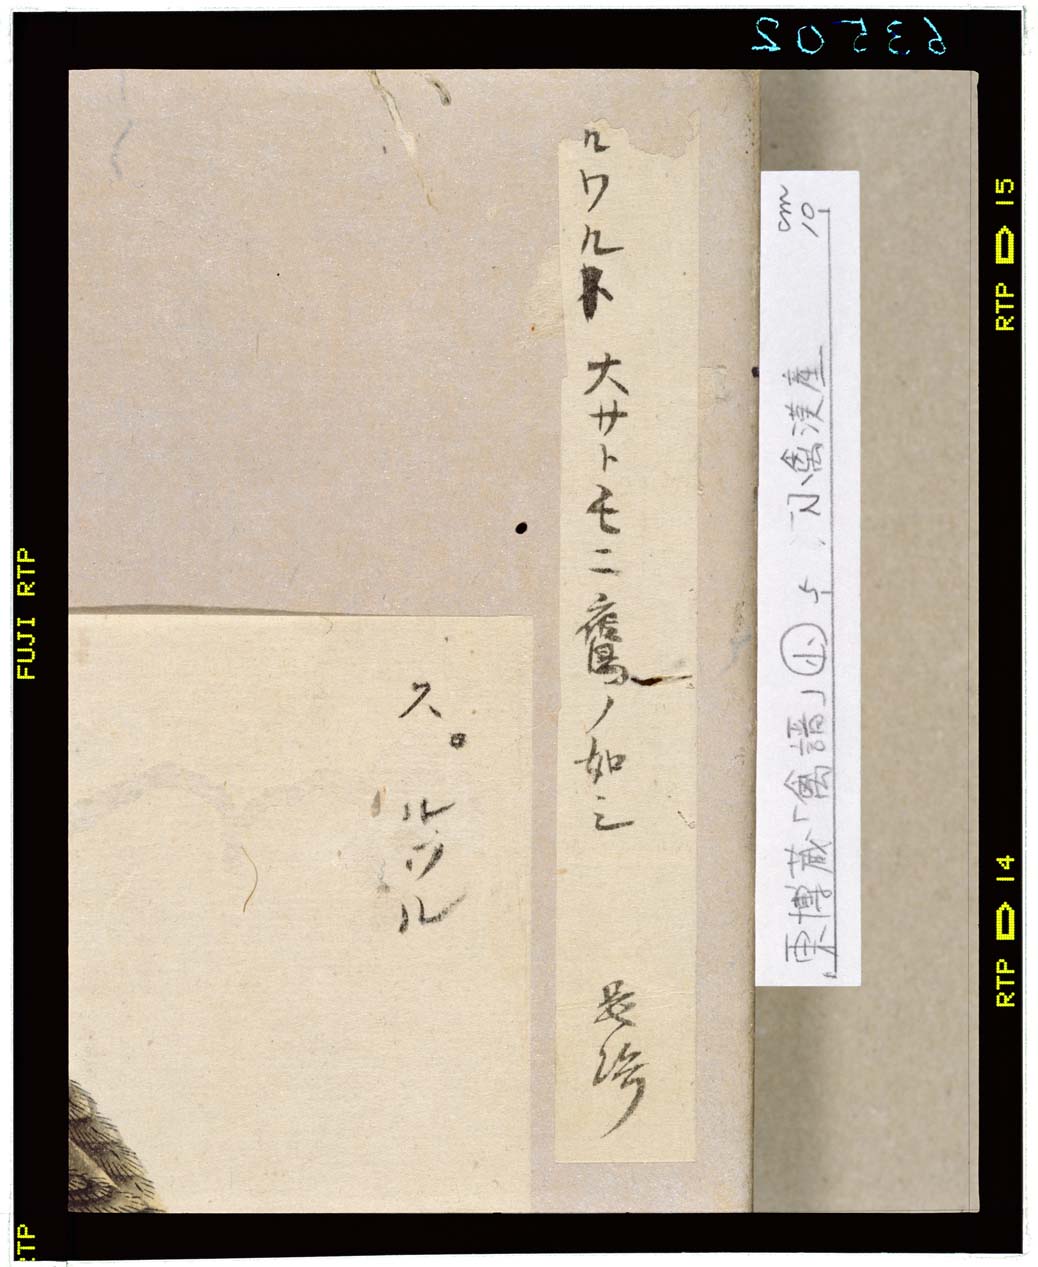 ルワルト 大サトモニ鷹ノ如シ
ス。ルワル
cm 10
東博蔵「禽譜」小
63502
FUJI RTP
RTP 15
RTP 14
RTP